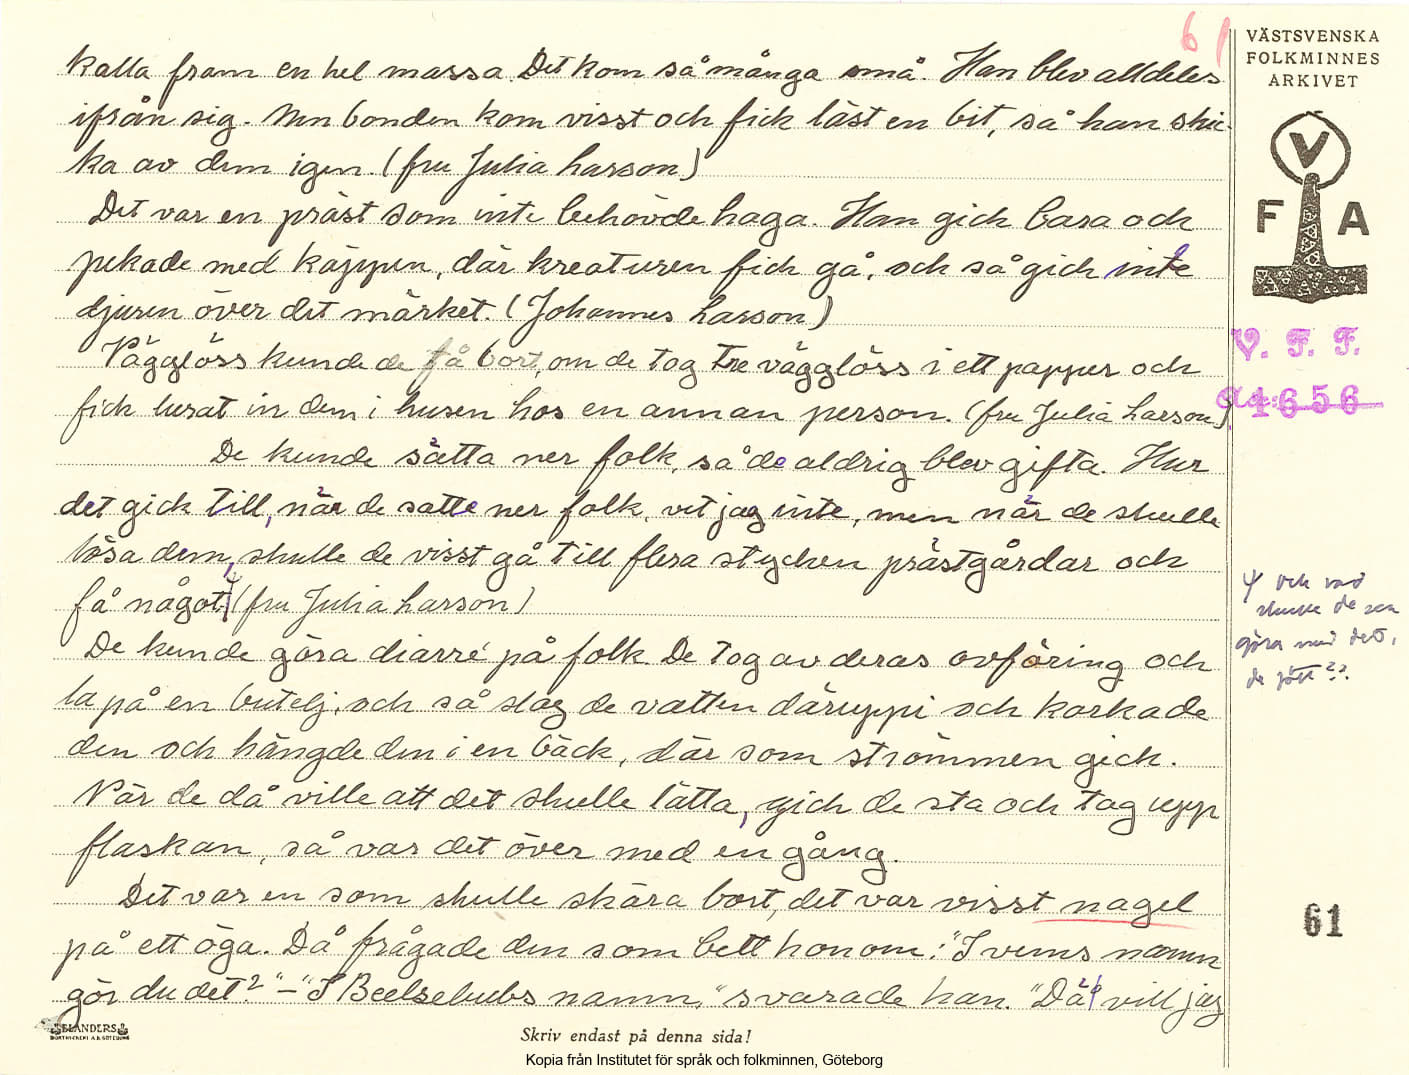 61
VÄSTSVENSKA
FOLKMINNES
ARKIVET
V
F A
V. F. F.
Acc: 4656
kalla fram en hel massa. Det kom så många små. Han blev alldeles
ifrån sig. Men bonden kom visst och fick läst en bit, så han skic-
ka av dem igen. (fru Julia Larson)
Det var en präst som inte behövde haga. Han gick bara och
pekade med käppen, där kreaturen fick gå, och så gick inte
djuren över det märket. (Johannes Larson)
Vägglöss kunde de få bort, om de tog tre vägglöss i ett papper och
fick lurat in dem i husen hos en annan person. (fru Julia Larson)
De kunde sätta ner folk, så de aldrig blev gifta. Hur
det gick till, när de satte ner folk, vet jag inte, men när de skulle
lösa dem, skulle de visst gå till flera stycken prästgårdar och
få något. (fru Julia Larson)
De kunde göra diarré på folk. De tog av deras avföring och
la på en butelj, och så slog de vatten däruppi och korkade
den och hängde den i en bäck, där som strömmen gick.
När de då ville att det skulle lätta, gick de sta och tog upp
flaskan, så var det över med en gång.
Det var en som skulle skära bort, det var visst nagel
på ett öga. Då frågade den som bett honom: "I vems namn
gör du det?" – "I Beelsebubs namn," svarade han. "Då vill jag
och vad
skulle de sen
göra med det,
de fått??
61
ELANDERS
BOKTRYCKERI A.B. GÖTEBORG
Skriv endast på denna sida!
Kopia från Institutet för språk och folkminnen, Göteborg